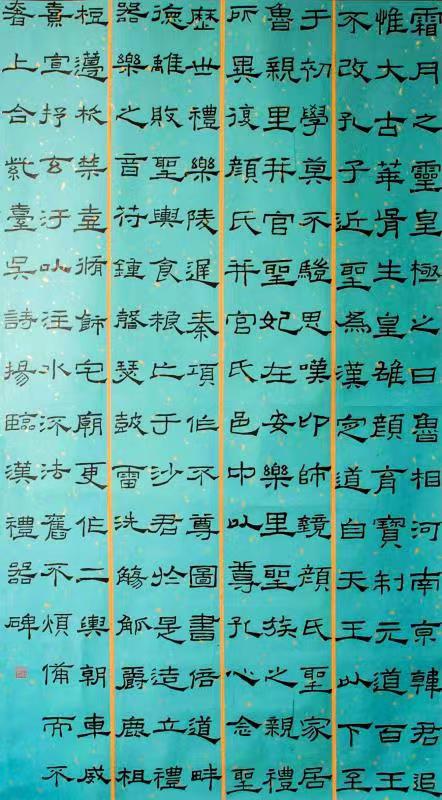 霜月之靈皇極之日魯相河南京韓君追
惟大古華胥生皇雄顏育寶制元道百王
不改孔子近聖為漢定道自天王以下至
于初學莫不驥思嘆卬師鏡顏氏聖家居
魯親里并官聖妃在安樂里聖族之親禮
所異復顏氏并官氏邑中以尊孔心念聖
歷世禮樂陵遲秦項作不尊圖書倍道畔
德離敗聖輿食糧亡于沙君於是造立禮
器樂之音符鍾磬瑟鼓雷洗觴觚爵鹿柤
梪籩柉禁壺脩飾宅廟更作二輿朝車威
熹宣抒玄汙以注水流法舊不煩備而不
奢上合紫臺吳詩揚臨漢禮器碑